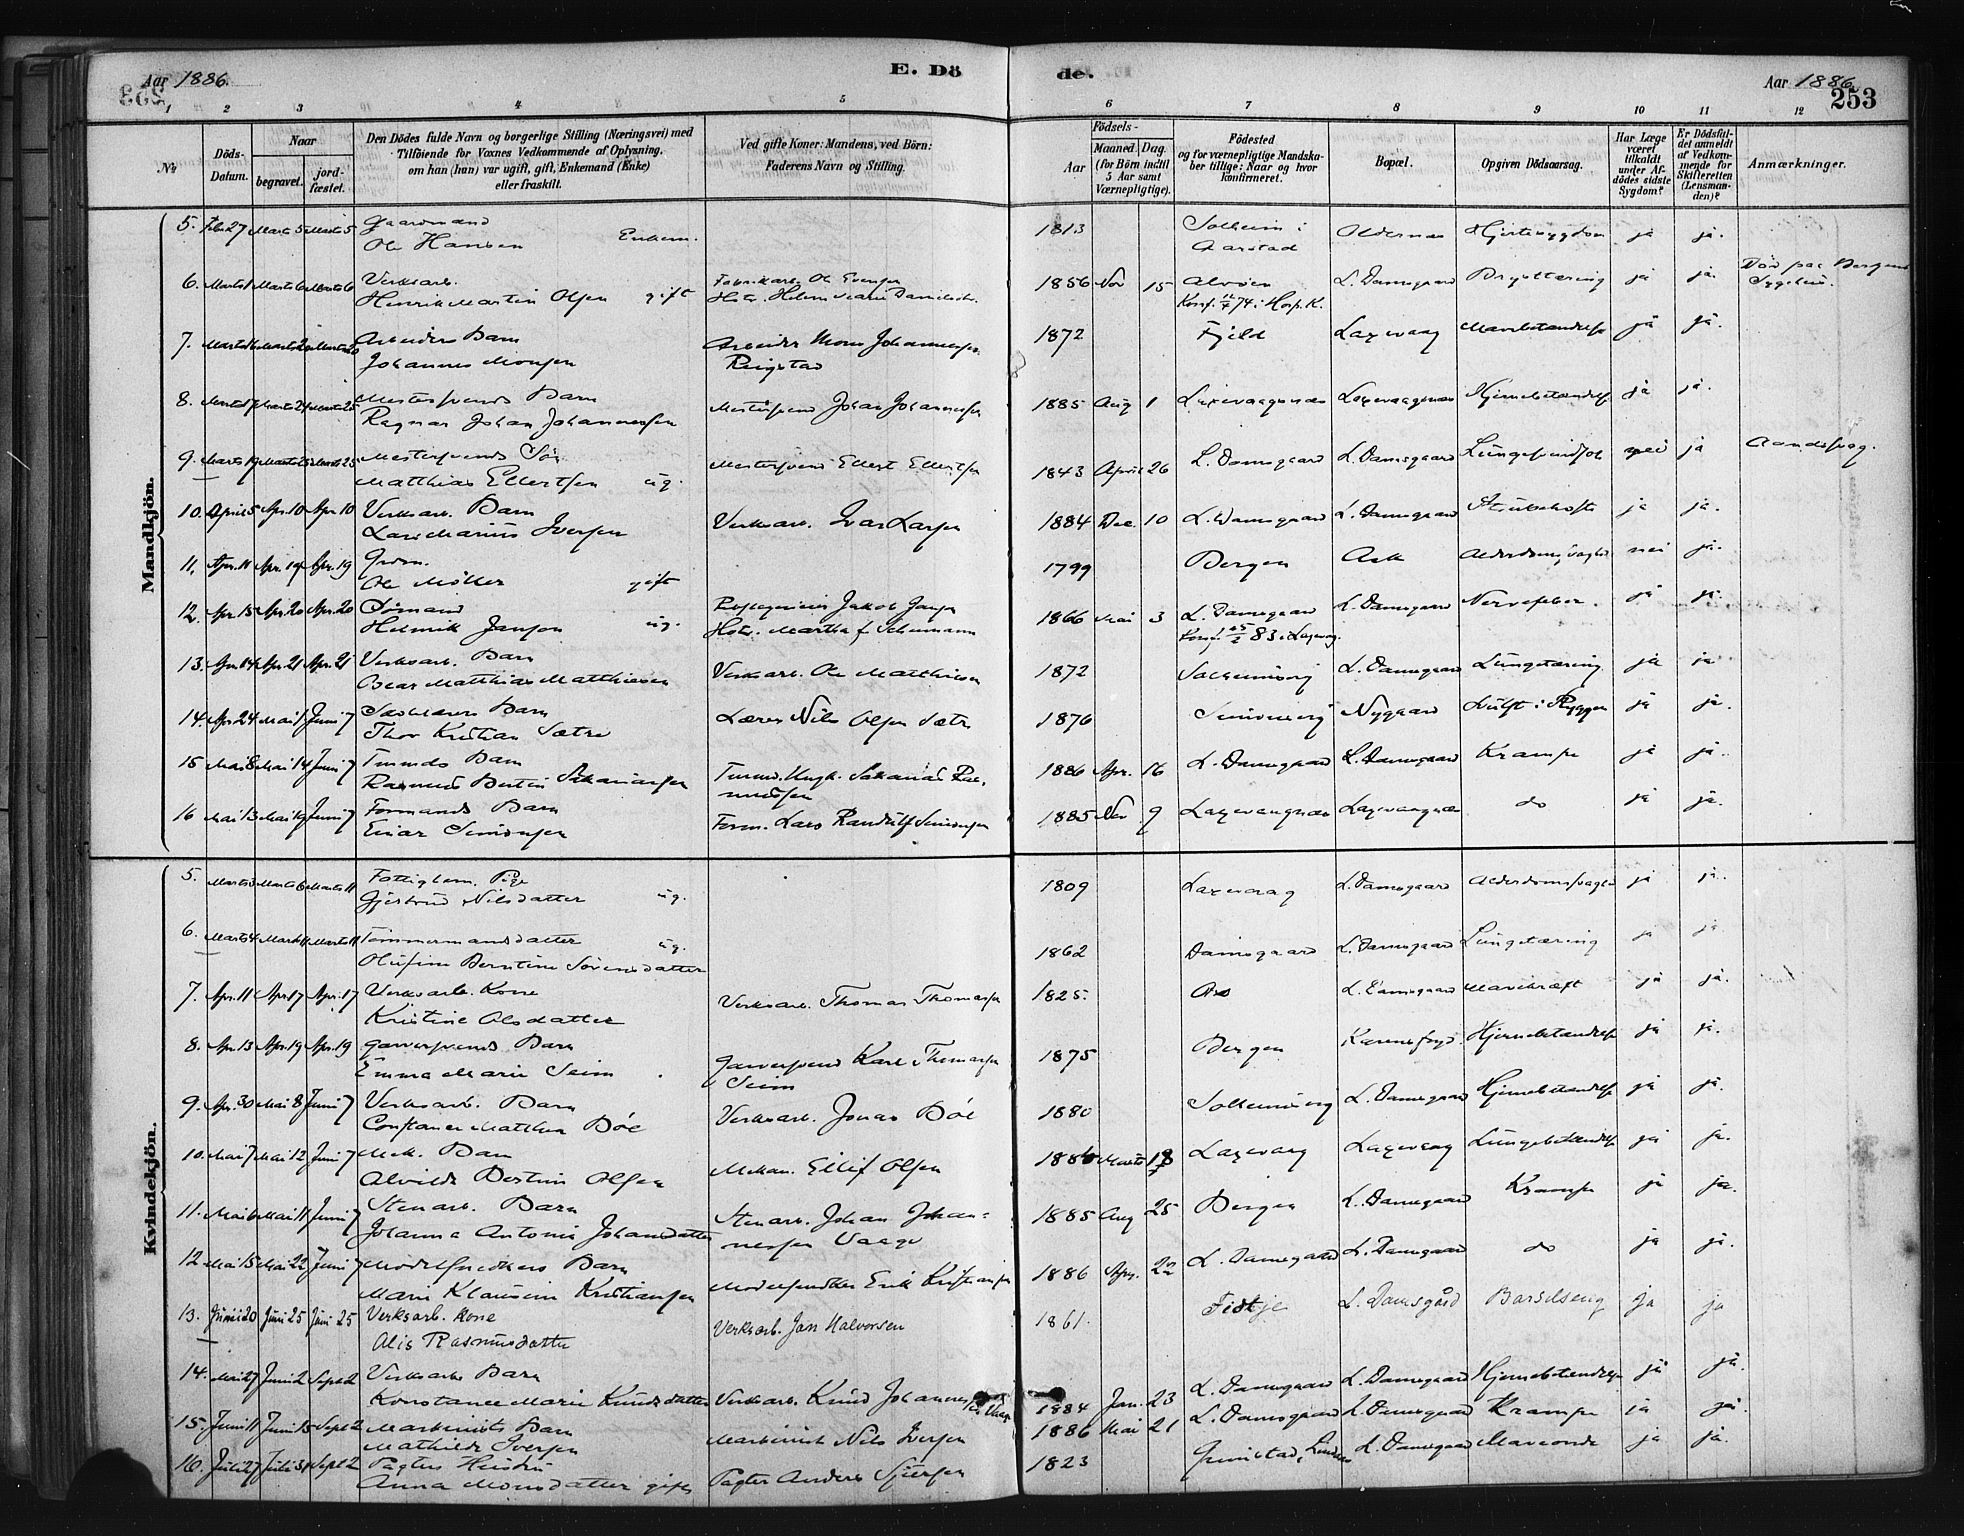 Aar 1886.
E. Dö
de.
Aar 1886.
253
1 2 3 4 5 6 7 8 9 10 11 12
No
Döds-Datum.
Naar
begravet.
jord-fæstet.
Den Dödes fulde Navn og borgerlige Stilling (Næringsvei) med
Tilföiende for Voxnes Vedkommende af Oplysning,
om han (hun) var ugift, gift, Enkemand (Enke)
eller fraskilt.
Ved gifte Koner: Mandens, ved Börn:
Faderens Navn og Stilling.
Födsels-
Aar
Maaned. Dag.
(for Börn indtil
5 Aar samt
Værnepligtige).
Födested
og for værnepligtige Mandska-
ber tillige: Naar og hvor
konfirmeret.
Bopæl.
Opgiven Dödsaarsag.
Har Læge
været
tilkaldt
under Af-
dödes sidste
Sygdom?
Er Dödsfal-
det anmeldt
af Vedkom-
mende for
Skifteretten
(Lensman-
den)?
Anmærkninger.
Mandkjön.
5. Febr 27 Marts 5 Marts 5 Gaardmand
Ole Hansen Enkem. 1813 Solheim i Aarstad Hjertesygdom ja ja.
6. Marts 1 Marts 6 Marts 6 Verksarb.
Henrik Martin Olsen gift Fabrikarb. Ole Evensen 1856 Nov 15 Alvöen L. Damsgaard Brysttæring ja ja Död paa Bergens Sygehus.
Konf. 74 i Hosp. K.
7. Marts 16 Marts 20 Marts 20 Arbeiders Barn
Johannes Monsen Arbeider Mons Johannessen 1872 Fjeld Laxevaag Mavebetændelse ja ja.
8. Marts 17 Marts 24 Marts 25 Mestersvends Barn
Ragnar Johan Johannessen Mestersvend Johan Johannessen 1885 Aug 1 Laxevaagsnæs Laxevaagsnæs Hjernebetændelse ja ja.
9. Marts 19 Marts 25 Marts 25 Mestersvends Sön
Matthias Ellertsen ug. Mestersvend Ellert Ellertsen 1843 April 26 L. Damsgaard L. Damsgaard nei ja Aandssvag.
10. April 5 Apr. 10 Apr. 10 Verksarb. Barn
Lars Marius Iversen Verksarb. Ivar Larsen 1884 Dec. 10 L. Damsgaard L. Damsgaard Strubehoste ja ja.
11. Apr. 11 Apr. 19 Apr. 19 Grdm.
Ole Möller gift 1799 Bergen Ask Alderdomssvaghed nei ja.
12. Apr. 15 Apr. 20 Apr. 20 Sömand
Helmik Jansen ug. Jakob Jansen 1866 Mai 3 L. Damsgaard L. Damsgaard Nervefeber. ja ja.
Hstr. Martha f. Schumann Konf. 83 i Laxevag.
13. Apr. 14 Apr. 21 Apr. 21 Verksarb. Barn
Matthias Matthiesen Verksarb. Ole Matthiesen 1872 L. Damsgaard Lungetæring ja ja
14. Apr. 24 Mai 1 Juni 7 Barn
Thor Kristian Sætre Lærer Nils Olsen Sætre 1876 Nygaard i Ryggen ja ja.
15 Mai 8 Mai 14 Juni 7 Barn
Rasmus Bertin Sakariassen Sakarias Ras-
mussen 1886 Apr. 16 L. Damsgaard L. Damsgaard Krampe ja ja.
16 Mai 13 Mai 19 Juni 7 Formands Barn
Einar Simonsen Form. Lars Randulf Simonsen 1885 Nov 9 Laxevaagnæs Laxevaagnæs do ja ja.
Kvindekjön.
5. Marts 3 Marts 6 Marts 11 Fattiglem. Pige
Gjertrud Nilsdatter ug. 1809 Laxevaag L. Damsgaard Alderdomssvaghed ja ja.
6. Marts 4 Marts 11 Marts 11 Tömmermandsdatter ug.
Olufine Berntine Sörensdatter 1862 Damsgaard L. Damsgaard Lungetæring ja ja.
7. Apr. 11 Apr 17 Apr. 17 Verksarb. Kone
Kristine Olsdatter Verksarb. Thomas Thomassen 1825. L. Damsgaard Mavekræft ja ja.
8. Apr. 13 Apr. 19 Apr. 19 Garversvends Barn
Emma Marie Seim Garversvend Karl Thomassen
Seim 1875 Bergen Hjernebetændelse ja ja.
9. Apr. 30 Mai 8 Juni 7 Verksarb. Barn
Constance Matthea Böe Verksarb. Jonas Böe 1880 Solheimsvig L. Damsgaard Hjernebetændelse ja ja.
10. Mai 7 Mai 12 Juni 7 Mek. Barn
Alvilde Bertine Olsen Mekan. Eilif Olsen 1886 Marts 18 Laxevaag Laxevaag Lungebetændelse ja ja.
11. Mai 6 Mai 11 Juni 7 Stenarb. Barn
Johanna Antonia Johansdatter Stenarb. Johan Johan-
nessen Vaage 1885 Aug 25 Bergen L. Damsgaard Krampe ja ja.
12 Mai 15 Mai 22 Juni 7 Modelsnedkers Barn
Marie Klausine Kristiansen Modelsnedker Erik Kristiansen 1886 Apr. 22 L. Damsgaard L. Damsgaard do ja ja.
13. Juni 20 Juni 25 Juni 25 Verksarb. kone
Alis Rasmusdatter Verksarb. Jan Halvorsen 1861. Fistje L. Damsgård Barselseng ja ja
14. Mai 27 Juni 2 Sept 2 Verksarb Barn
Konstance Marie Knudsdatter Verksarb. Knud Johannessen 1884 Jan. 23 L. Damsgaard L. Damsgaard Hjernebetændelse ja ja.
15. Juni 11 Juni 15 Sept 2 Maskinists Barn
Mathilde Iversen Maskinist Nils Iversen 1886 Mai 21 L. Damsgaard L. Damsgaard Krampe ja ja.
16. Juli 27 Juli 31 Sept 2 Pagters Hustru
Anna Monsdatter gift Pagter Anders Sjursen 1823 Grimstad, L. Damsgaard Maveonde ja ja.